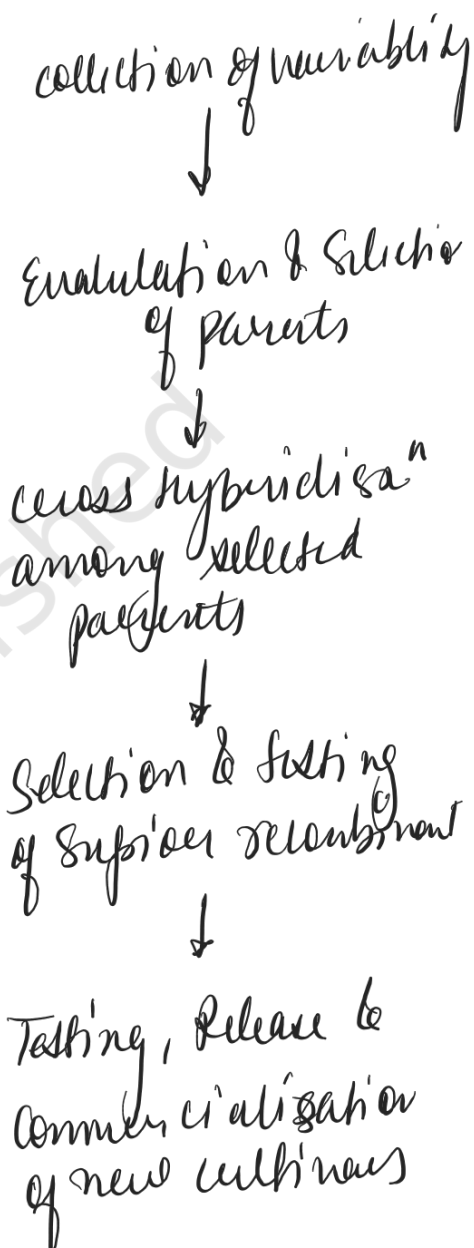 collection of variablity
↓
Evalulation & Selectio
of parents
↓
cross hybridisaⁿ
among selected
parents
↓
Selection & testing
of Suprior recombinant
↓
Testing, Release &
Commercialisation
of new cultivars
shed